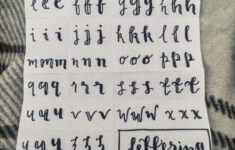 e e e f f f g g g h h h
i i i j j j k k k l l l
m m m n n n o o o p p p
q q q r r r s s s t t t
u u u v v v w w w x x x
y y y z z z lettering